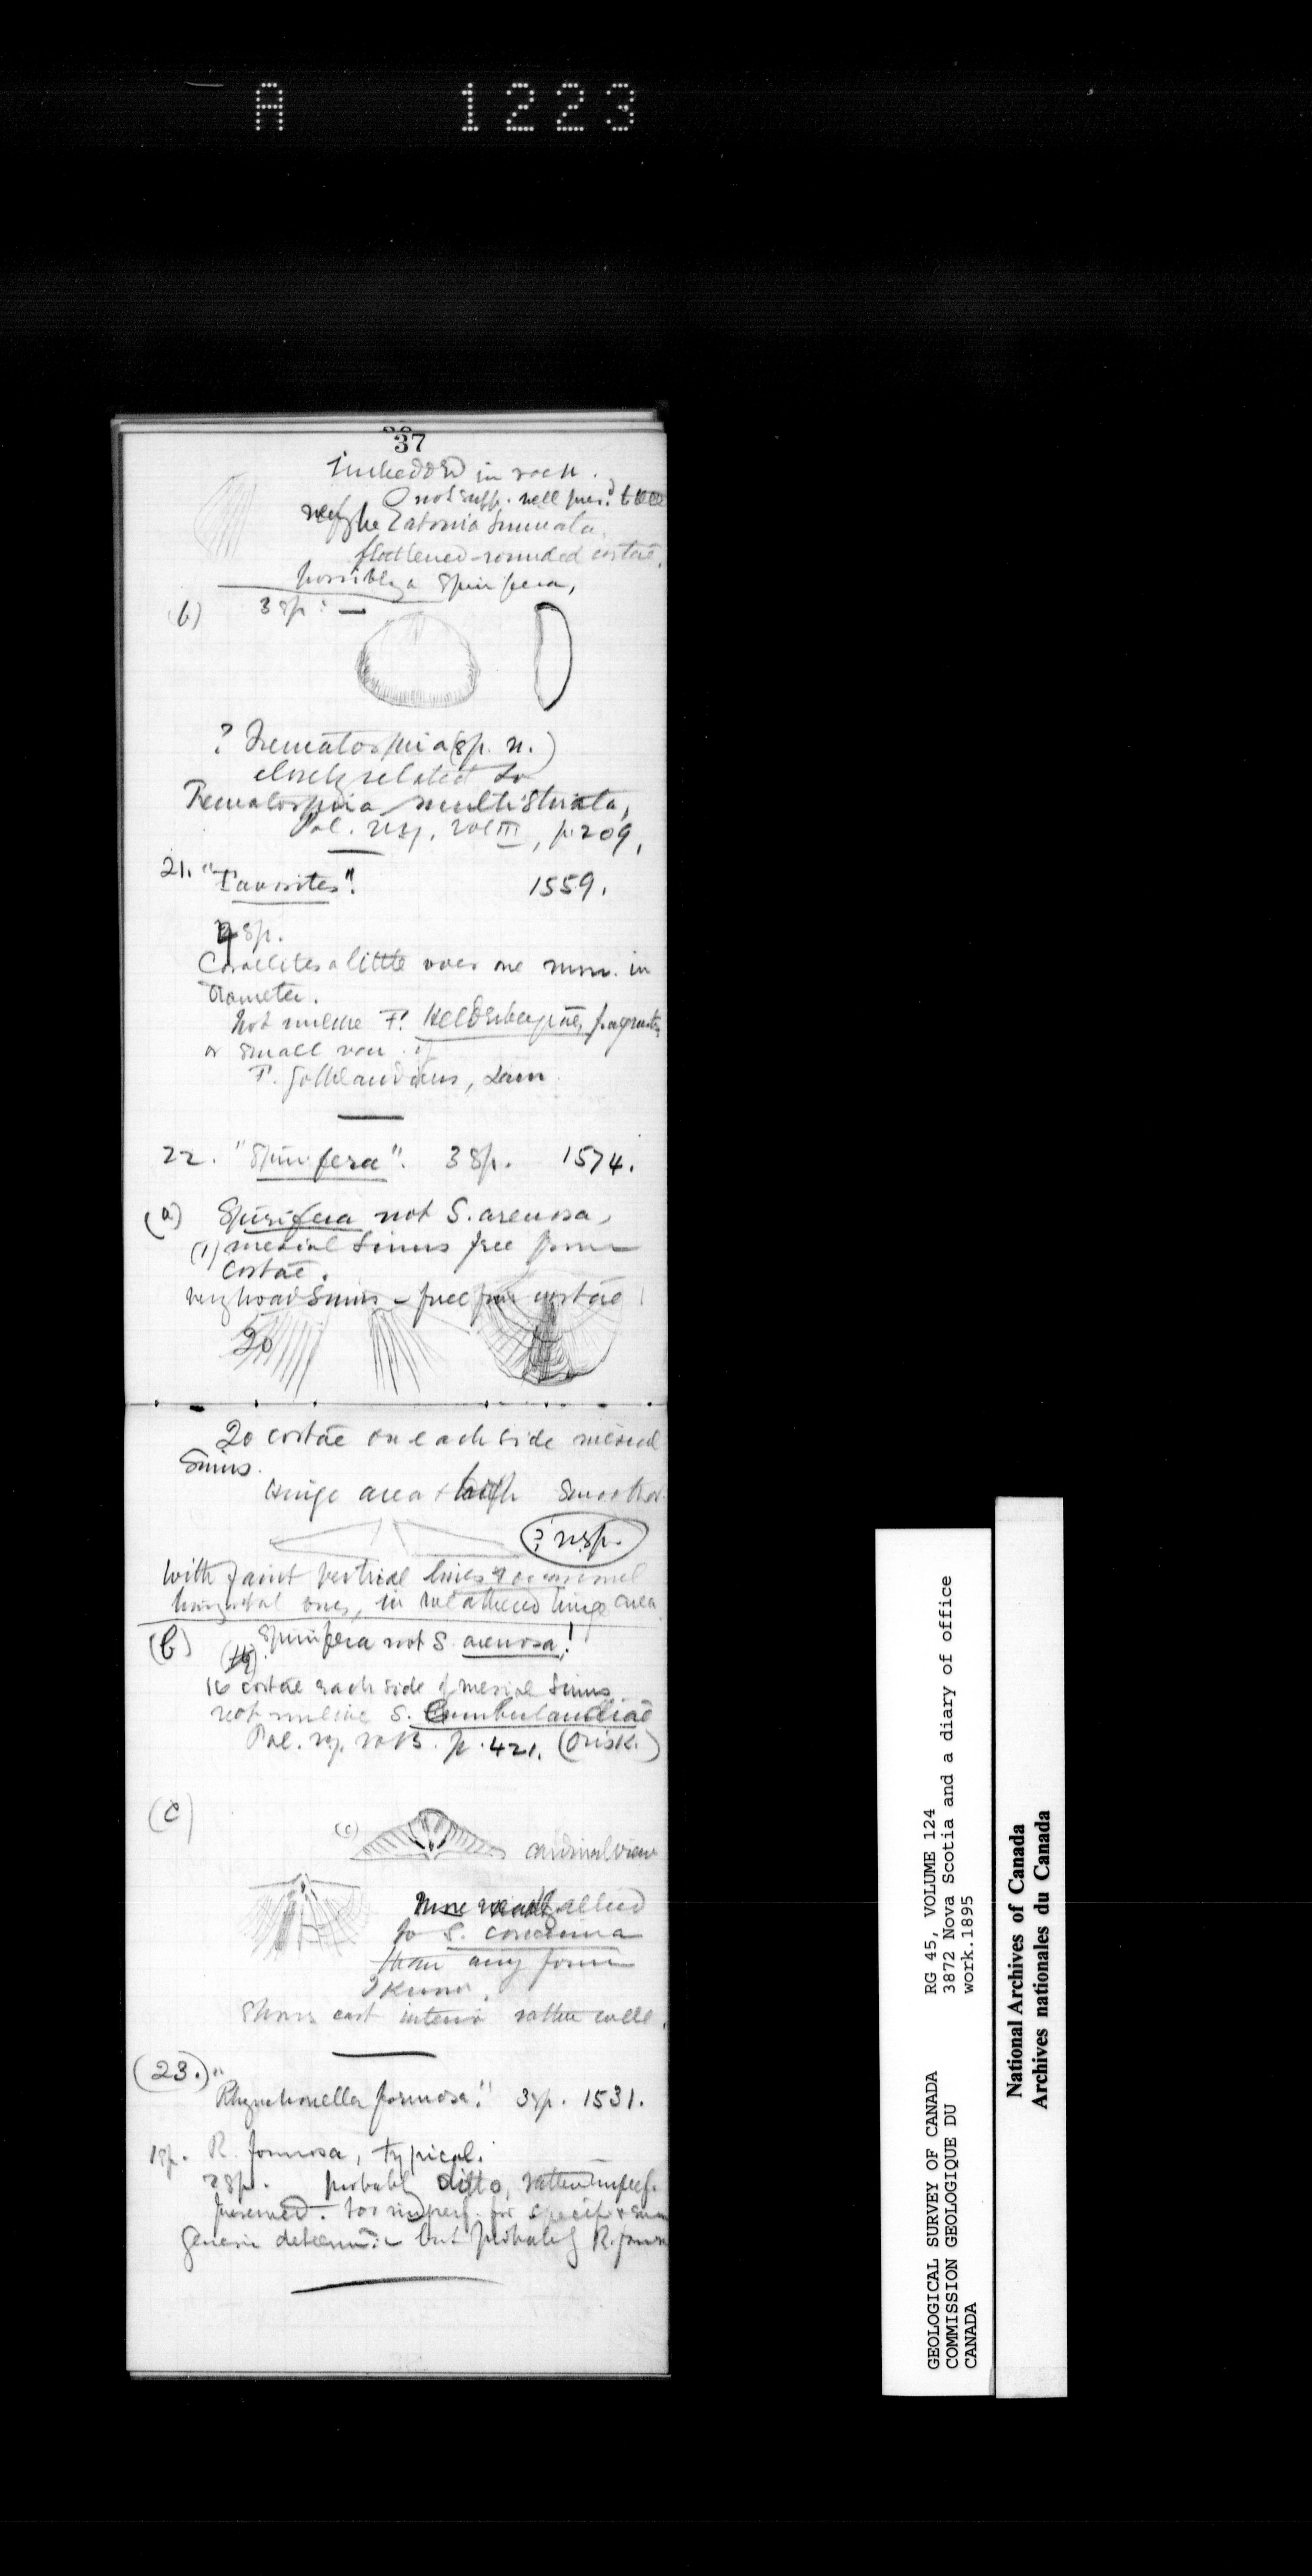 A 1223
37
imbedded in rock.
not suff. well pres.d to tell
may be Eatonia sinuata,
flattened-rounded costae,
possibly a Spirifera,
(b) 3 sp: —
? Trematospira (sp. n.)
closely related to
Trematospira multistriata,
Pal. N.Y. Vol III, p. 209,
21. "Favosites". 1559.
sp.
Corallites a little over one mm. in
diameter.
Not unlike F. Helderbergiae, fragments
or small var. of
F. Gothlandicus, Lam.
22. "Spirifera". 3 sp. 1574.
(a) Spirifera not S. arenosa,
(1) mesial sinus free from
costae.
very broad sinus – free from costae
20
20 costae on each side mesial
sinus.
hinge area + high smooth
? n.sp.
With faint vertical lines & occasional
horizontal ones, in weathered hinge area
(b) Spirifera not S. arenosa!
16 costae each side of mesial sinus
not unlike S. Cumberlandiae
Pal. N.Y. vol 3. p. 421. (Orisk.)
(c)
(c) cardinal view
More nearly allied
to S. concinna
than any form
I know.
Shows cast interior rather well.
(23.) "Rhynchonella formosa". 3 sp. 1531.
1 sp. R. formosa, typical.
2 sp. probably ditto, rather imperf.
preserved. too imperf. for specific &
generic determ.n – but probably R. formosa
GEOLOGICAL SURVEY OF CANADA
COMMISSION GEOLOGIQUE DU
CANADA
RG 45, VOLUME 124
3872 Nova Scotia and a diary of office
work.1895
National Archives of Canada
Archives nationales du Canada